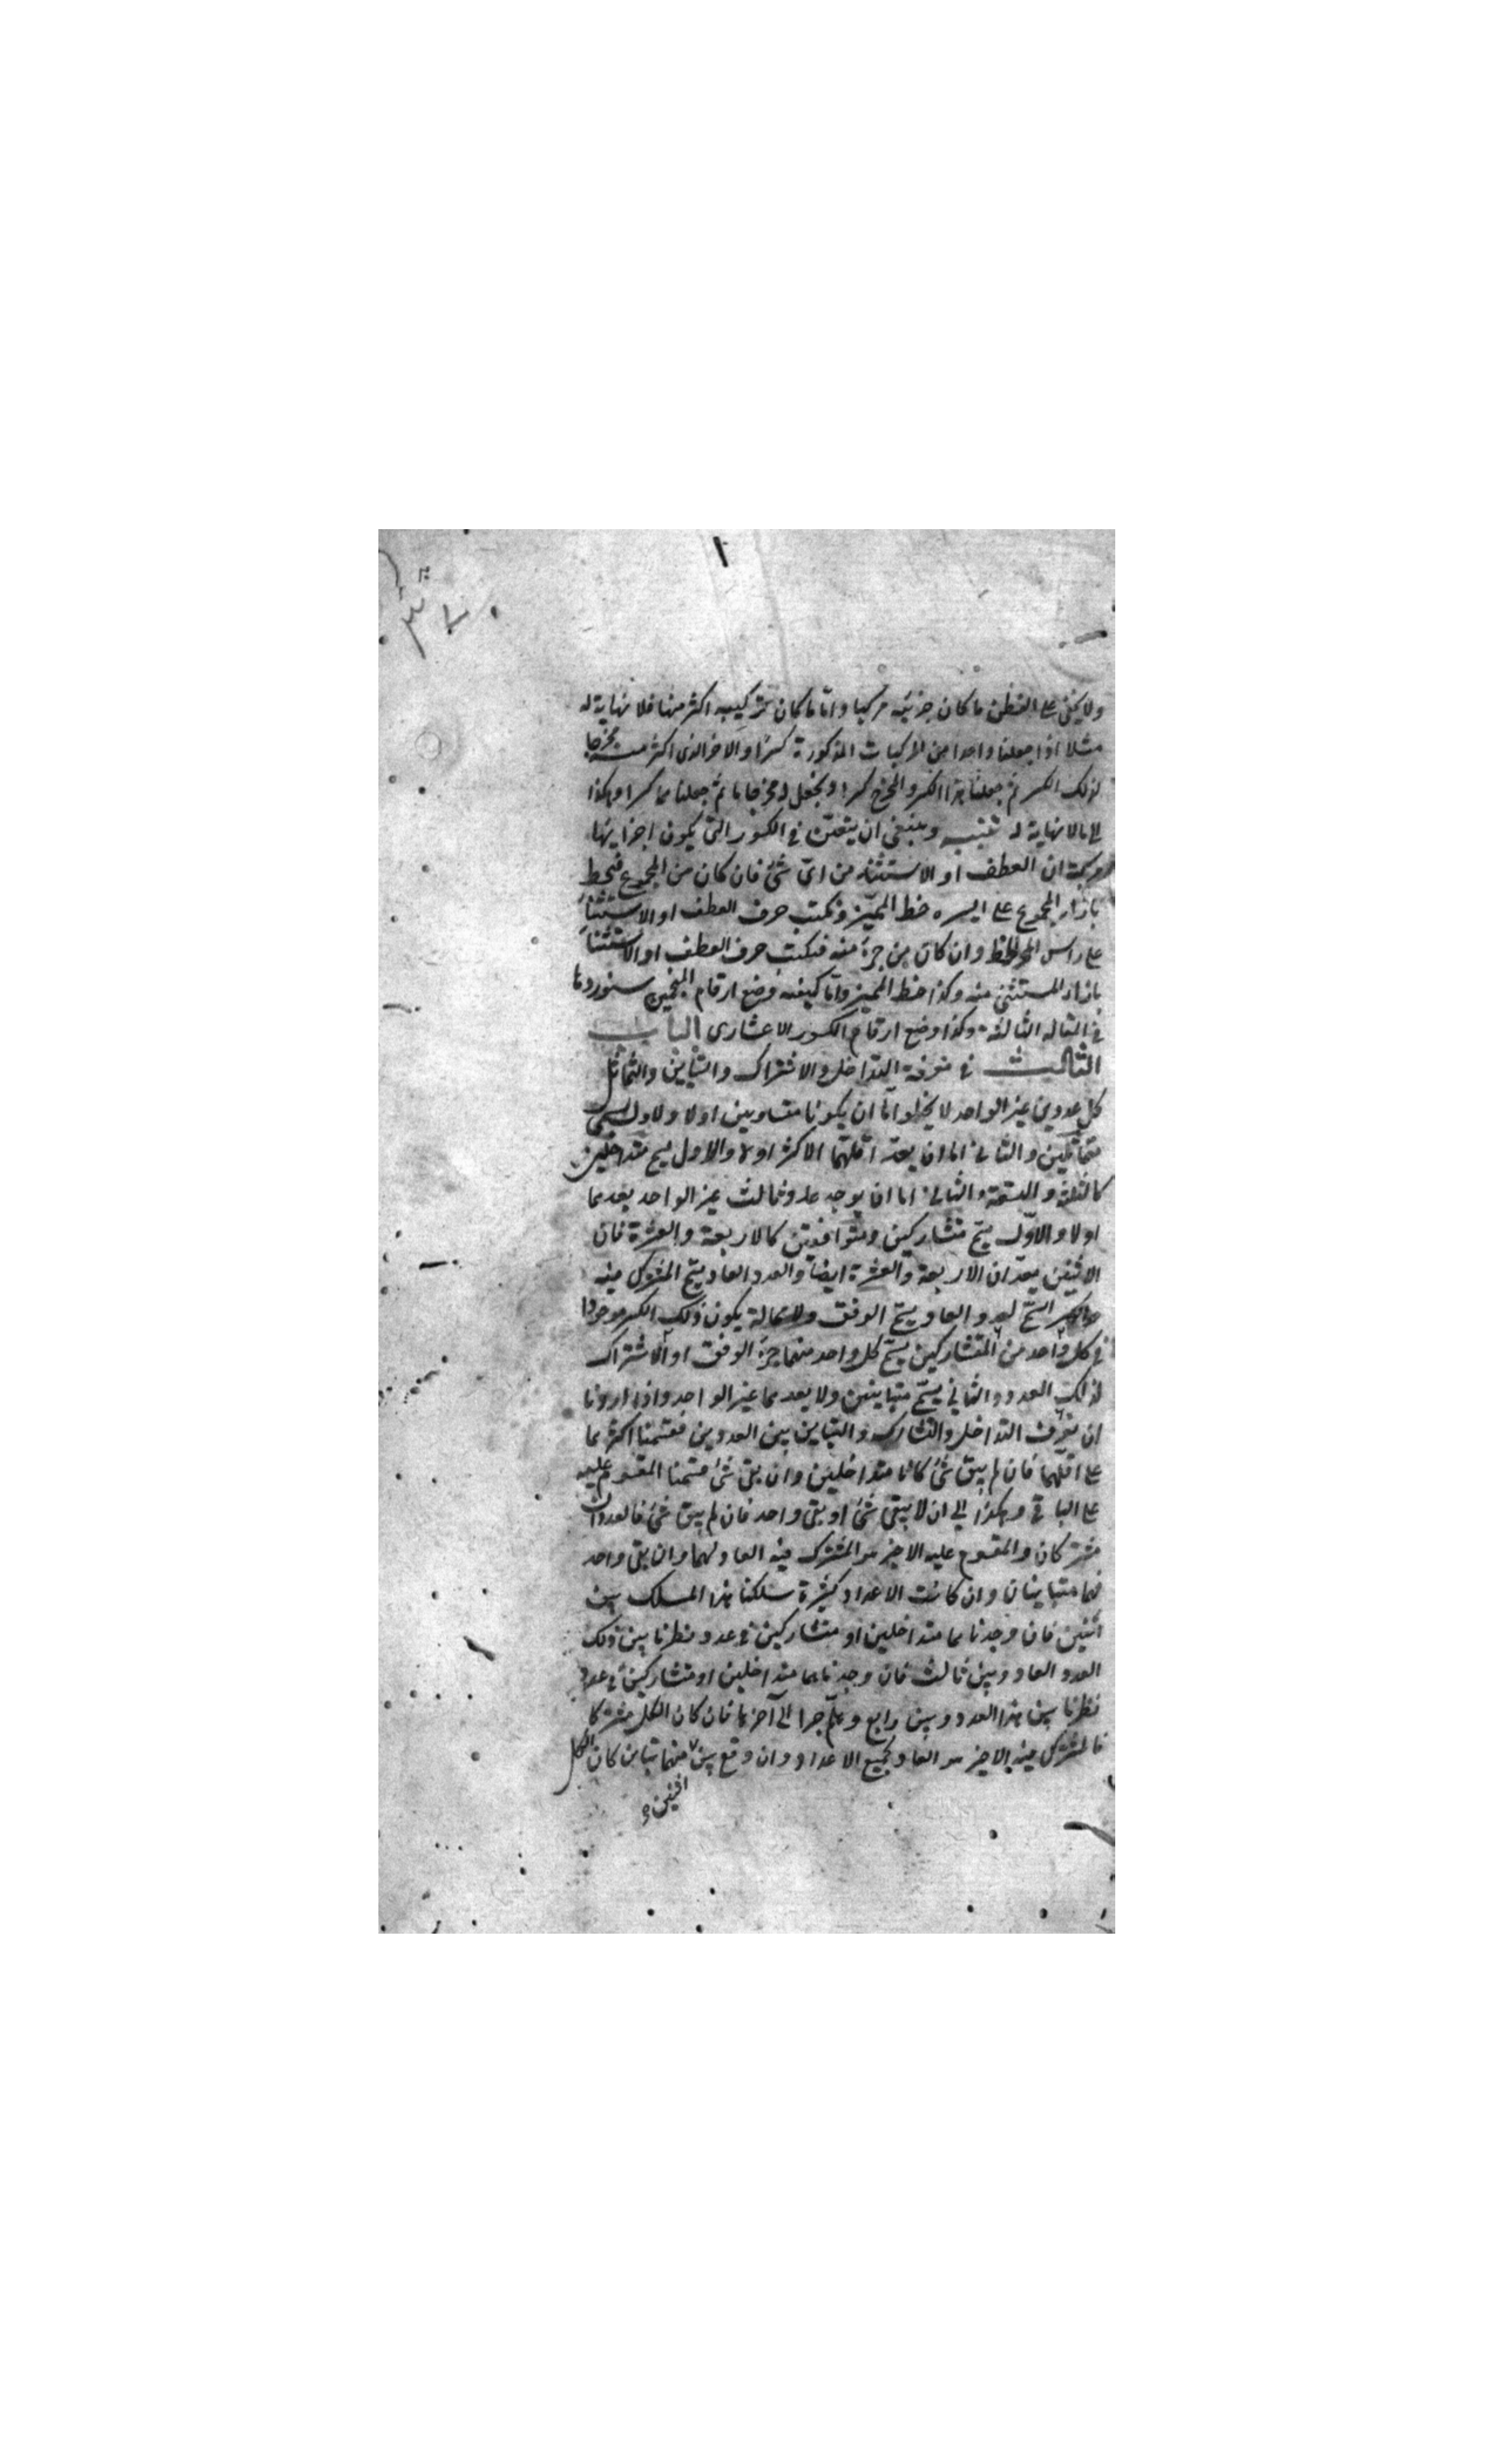 ولا يخفى على الفطن ما كان جزئيه مركبا واما ما كان تركيبه اكثر منها فلا نهاية له
مثلا اذا جعلنا واحدا من المركبات المذكورة كسرا والاخر الذى اكثر منه مخرجا
لذلك الكسر ثم جعلنا هذا الكسر والمخرج كسرا ونجعل له مخرجا ما ثم جعلناهما كسرا وهكذا
الى ما لا نهاية له تنبيه وينبغى ان يتعين فى الكسور التى يكون اجزايها
مركبة ان العطف او الاستثناء من اىّ شئ فان كان من المجموع فنخط
بازاء المجموع على ايسره خط المميّز ونكتب حرف العطف او الاستثناء
على راس الخط وان كان من جزء منه فنكتب حرف العطف او الاستثناء
بازاء المستثنى منه وكذا خط المميز واما كيفيه وضع ارقام المنجمين سنوردها
فى المقاله الثالثة وكذا وضع ارقام الكسور الاعشارى الباب
الثالث فى معرفة التداخل والاشتراك والتباين والتماثل
كل عددين غير الواحد لا يخلوا امّا ان يكونا متساويين اولا ولاول يسمى
متماثلين والثانى اما ان يعدّ اقلهما الاكثر اولا والاول يسمى متداخلين
كالثلثة والتسعة والثانى اما ان يوجد عدد ثالث غير الواحد يعدهما
اولا والاوّل يسمى متشاركين ومتوافقين كالاربعة والعشرة فان
الاثنين يعدّان الاربعة والعشرة ايضا والعدد العاد يسمى المشترك فيه
والكسر السمى لعدد العاد يسمى الوفق ولا محالة يكون ذلك الكسر موجودا
فى كل واحد من المتشاركين يسمى كل واحد منهما جزء الوفق او الاشتراك
لذلك العدد والثانى يسمى متباينين ولا يعدهما غير الواحد واذا اردنا
ان نعرف التداخل والتشارك والتباين بين العددين فقسمنا اكثرهما
على اقلّهما فان لم يبق شئ كانا متداخلين وان بقى شئ قسمنا المقسوم عليه
على الباقى وهكذا الى ان لا يبقى شئ او بقى واحد فان لم يبق شئ فالعددان
مشتركان والمقسوم عليه الاخير هو المشترك فيه العاد لهما وان بقى واحد
فهما متباينان وان كانت الاعداد كثيرة سلكنا هذا المسلك بين
اثنين فان وجدناهما متداخلين او متشاركين فى عدد نظرنا بين ذلك
العدد العاد وبين ثالث فان وجدناهما متداخلين او متشاركين فى عدد
نظرنا بين هذا العدد وبين رابع وهلّم جرا الى آخرها فان كان الكل مشتركا
فالمشترك فيه الاخير هو العاد لجميع الاعداد وان وقع بين منهما تباين كان الكل
اثنين